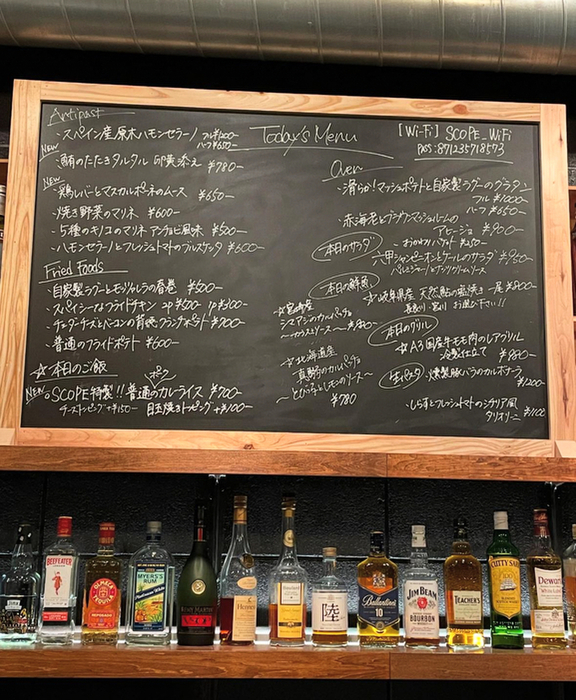 Antipast
・スペイン産原木ハモンセラーノ フル¥1200-
ハーフ¥650-
NEW
・鮪のたたきタルタル 卵黄添え ¥780-
NEW
・鶏レバーとマスカルポーネのムース ¥650-
・焼き野菜のマリネ ¥600-
・5種のキノコのマリネ アンチョビ風味 ¥500-
・ハモンセラーノとフレッシュトマトのブルスケッタ ¥600-
Fried Foods
・自家製ラグーとモッツァレラの春巻 ¥500-
・スパイシーなフライドチキン 2P ¥500- 1P ¥300-
・チェダーチーズとベーコンの背徳フライドポテト ¥700-
・普通のフライドポテト ¥600-
☆本日のご飯
NEW
SCOPE特製!!普通のカレーライス ¥700-
チーストッピング+¥150- 目玉焼きトッピング+¥100-
Today's Menu
[Wi-Fi] SCOPE_WiFi
Pass: 871235718573
Oven
・滑らか!マッシュポテトと自家製ラグーのグラタン
フル ¥1000-
ハーフ ¥650-
・赤海老とブラウンマッシュルームの
アヒージョ ¥900-
・おかわりバケット ¥250-
本日のサラダ
六甲シャンピニオンとケールのサラダ ¥950-
本日の鮮魚
☆宮崎産
シマアジのカルパッチョ
☆岐阜県産 天然鮎の塩焼き 一尾 ¥900-
長良川・宮川 お選び下さい!!
本日のグリル
☆A3国産牛モモ肉のレアグリル
冷製仕立て ¥880-
☆北海道産
真鯛のカルパッチョ
〜とびっ子とレモンのソース〜
¥780
生パスタ
・燻製豚バラのカルボナーラ
¥1200
・しらすとフレッシュトマトのシチリア風
タリオリーニ ¥1100
BEEFEATER
OLMECA
MYERS'S
RUM
REMY MARTIN
VSOP
Hennessy
陸
Ballantine's
JIM BEAM
BOURBON
TEACHER'S
CUTTY SARK
Dewar's